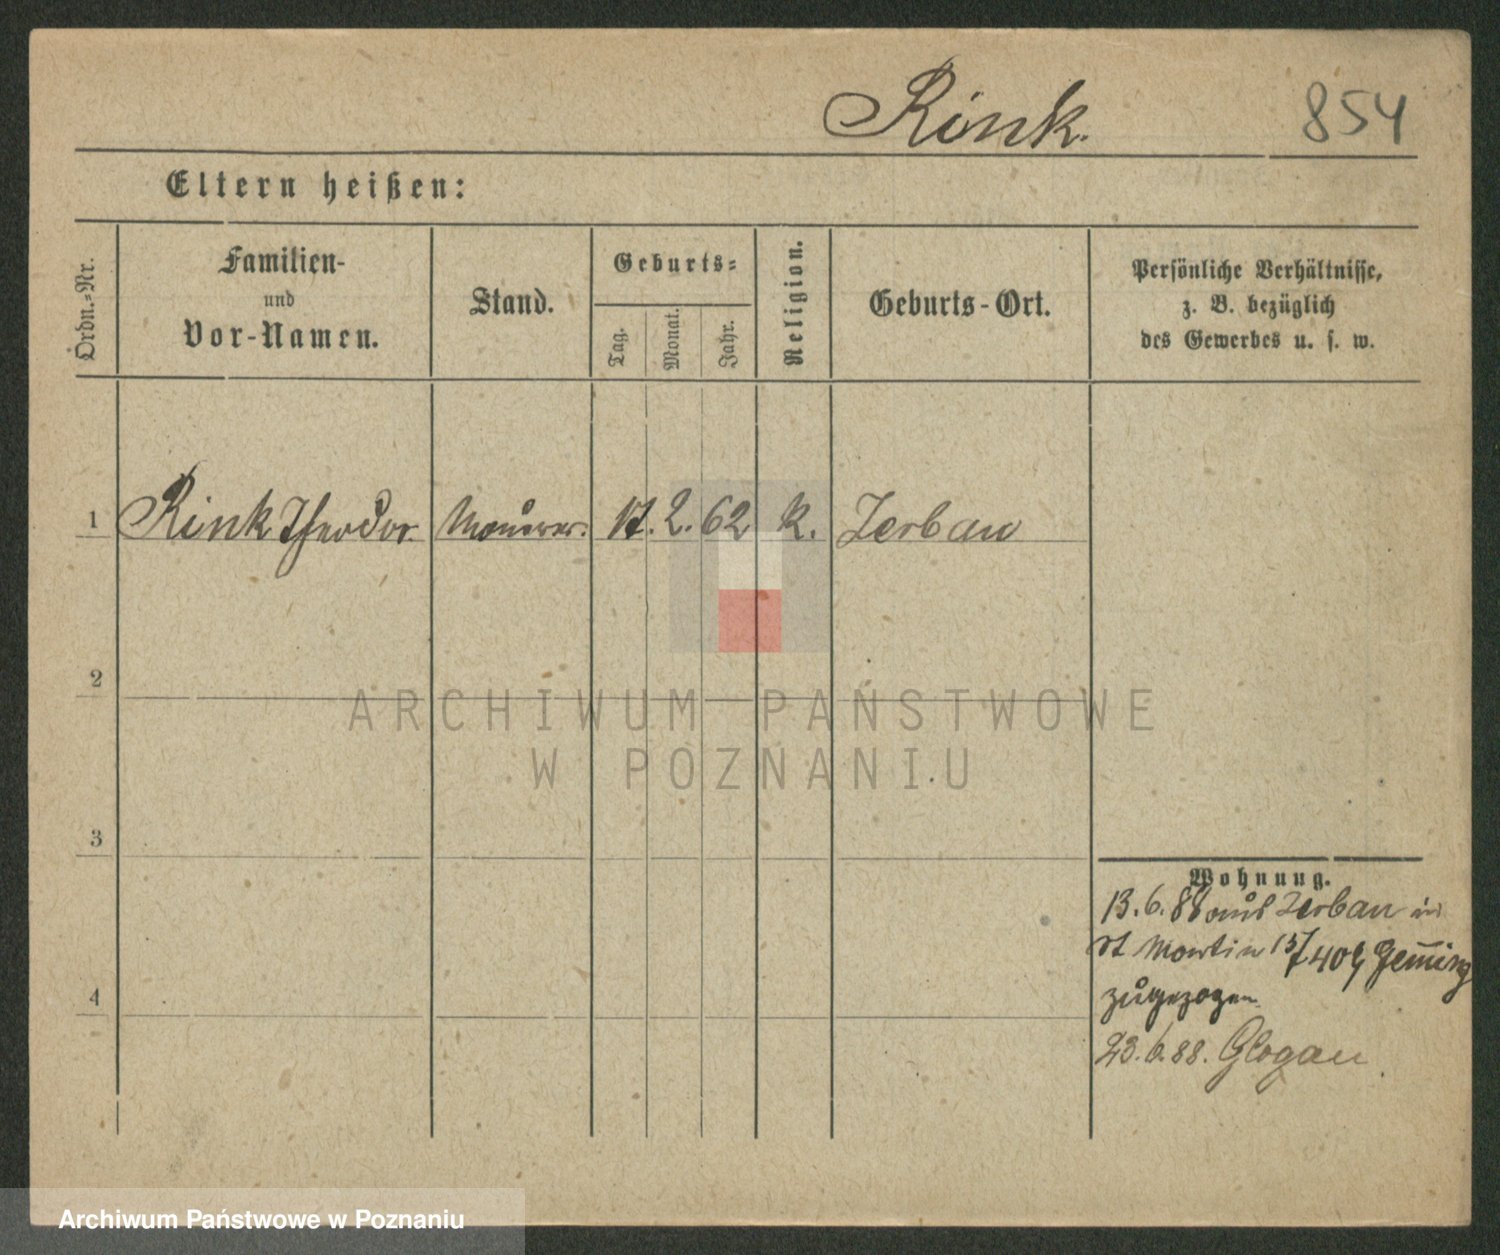 Rink. 854
Eltern heißen:
Ordn.=Nr.
Familien-
und
Vor-Namen.
Stand.
Geburts=
Tag.
Monat.
Jahr.
Religion.
Geburts-Ort.
Persönliche Verhältnisse,
z. B. bezüglich
des Gewerbes u. s. w.
1 Rink Theodor Maurer. 17. 2. 62 k. Zerbau
2
ARCHIWUM PAŃSTWOWE
W POZNANIU
3
Wohnung.
13. 6. 88 aus Zerbau in
St Martin 15/
zugezogen
4
23. 6. 88. Glogau
Archiwum Państwowe w Poznaniu